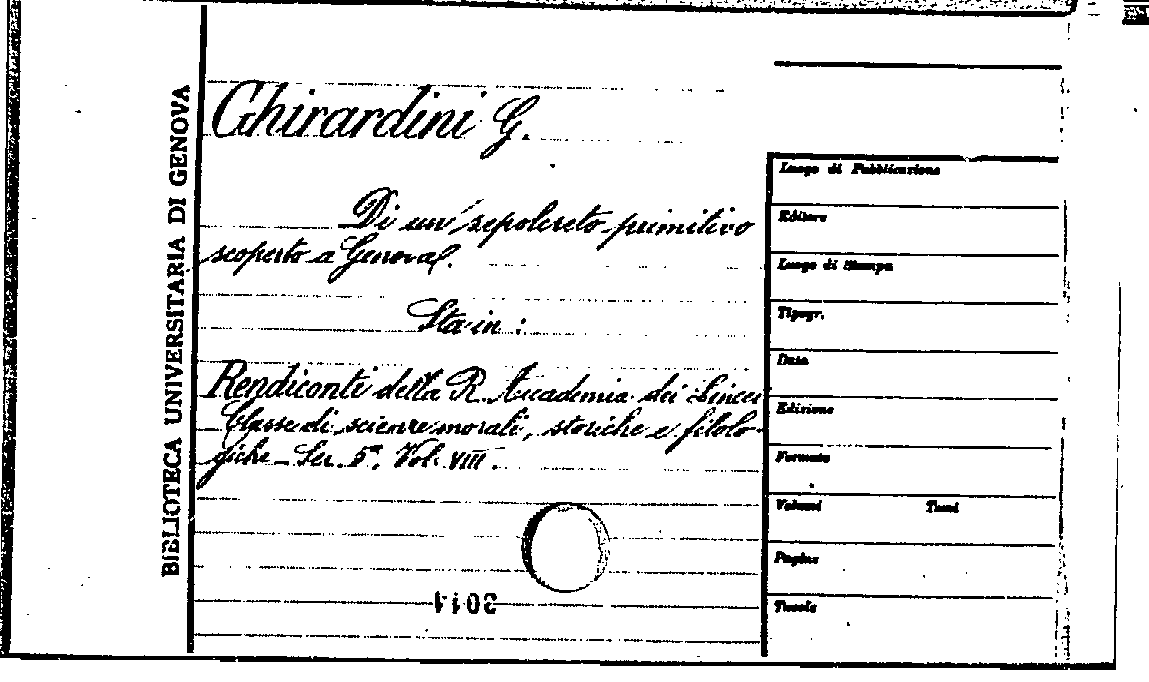 BIBLIOTECA UNIVERSITARIA DI GENOVA
Ghirardini G.
Di un sepolcreto primitivo
scoperto a Genova.
Sta in:
Rendiconti della R. Accademia dei Lincei
Classe di scienze morali, storiche e filolo-
giche - Ser. 5ª. Vol. VIII.
Luogo di Pubblicazione
Editore
Luogo di Stampa
Tipogr.
Data
Edizione
Formato
Volumi Tomi
Pagine
Tavole